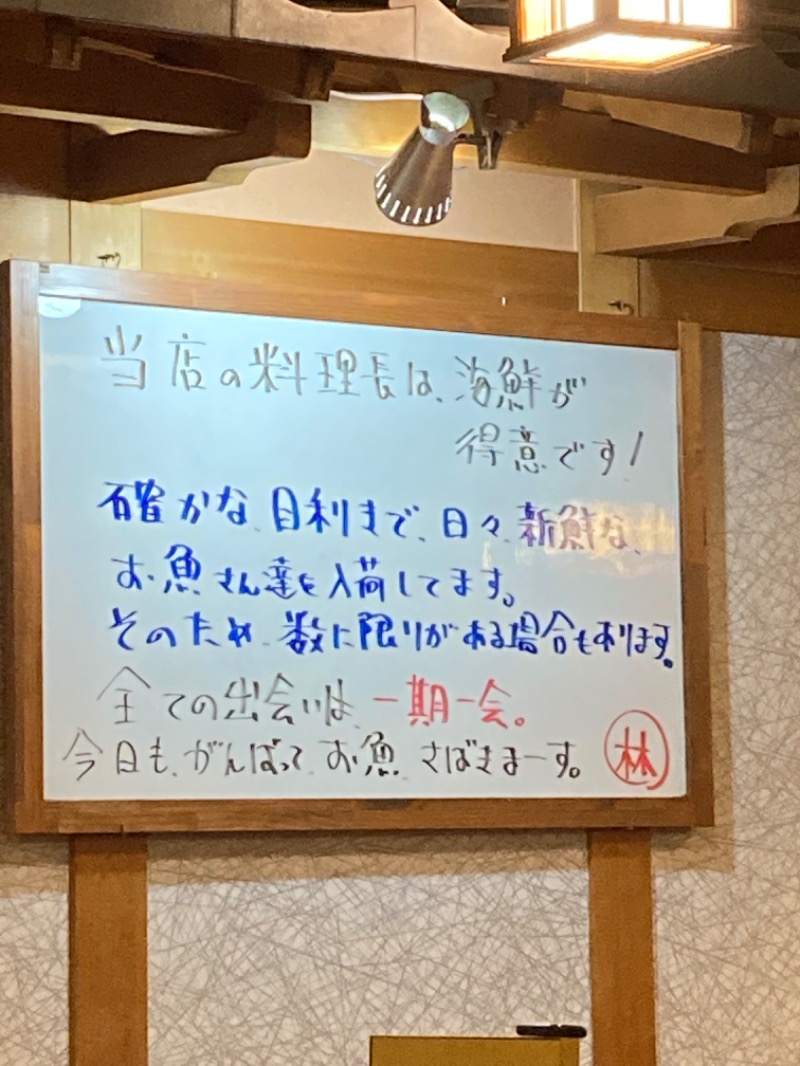 当店の料理長は、海鮮が
得意です!
確かな、目利きで、日々、新鮮な、
お魚さん達を入荷してます。
そのため、数に限りがある場合もあります。
全ての出会いは、一期一会。
今日も、がんばって、お魚、さばきまーす。 林